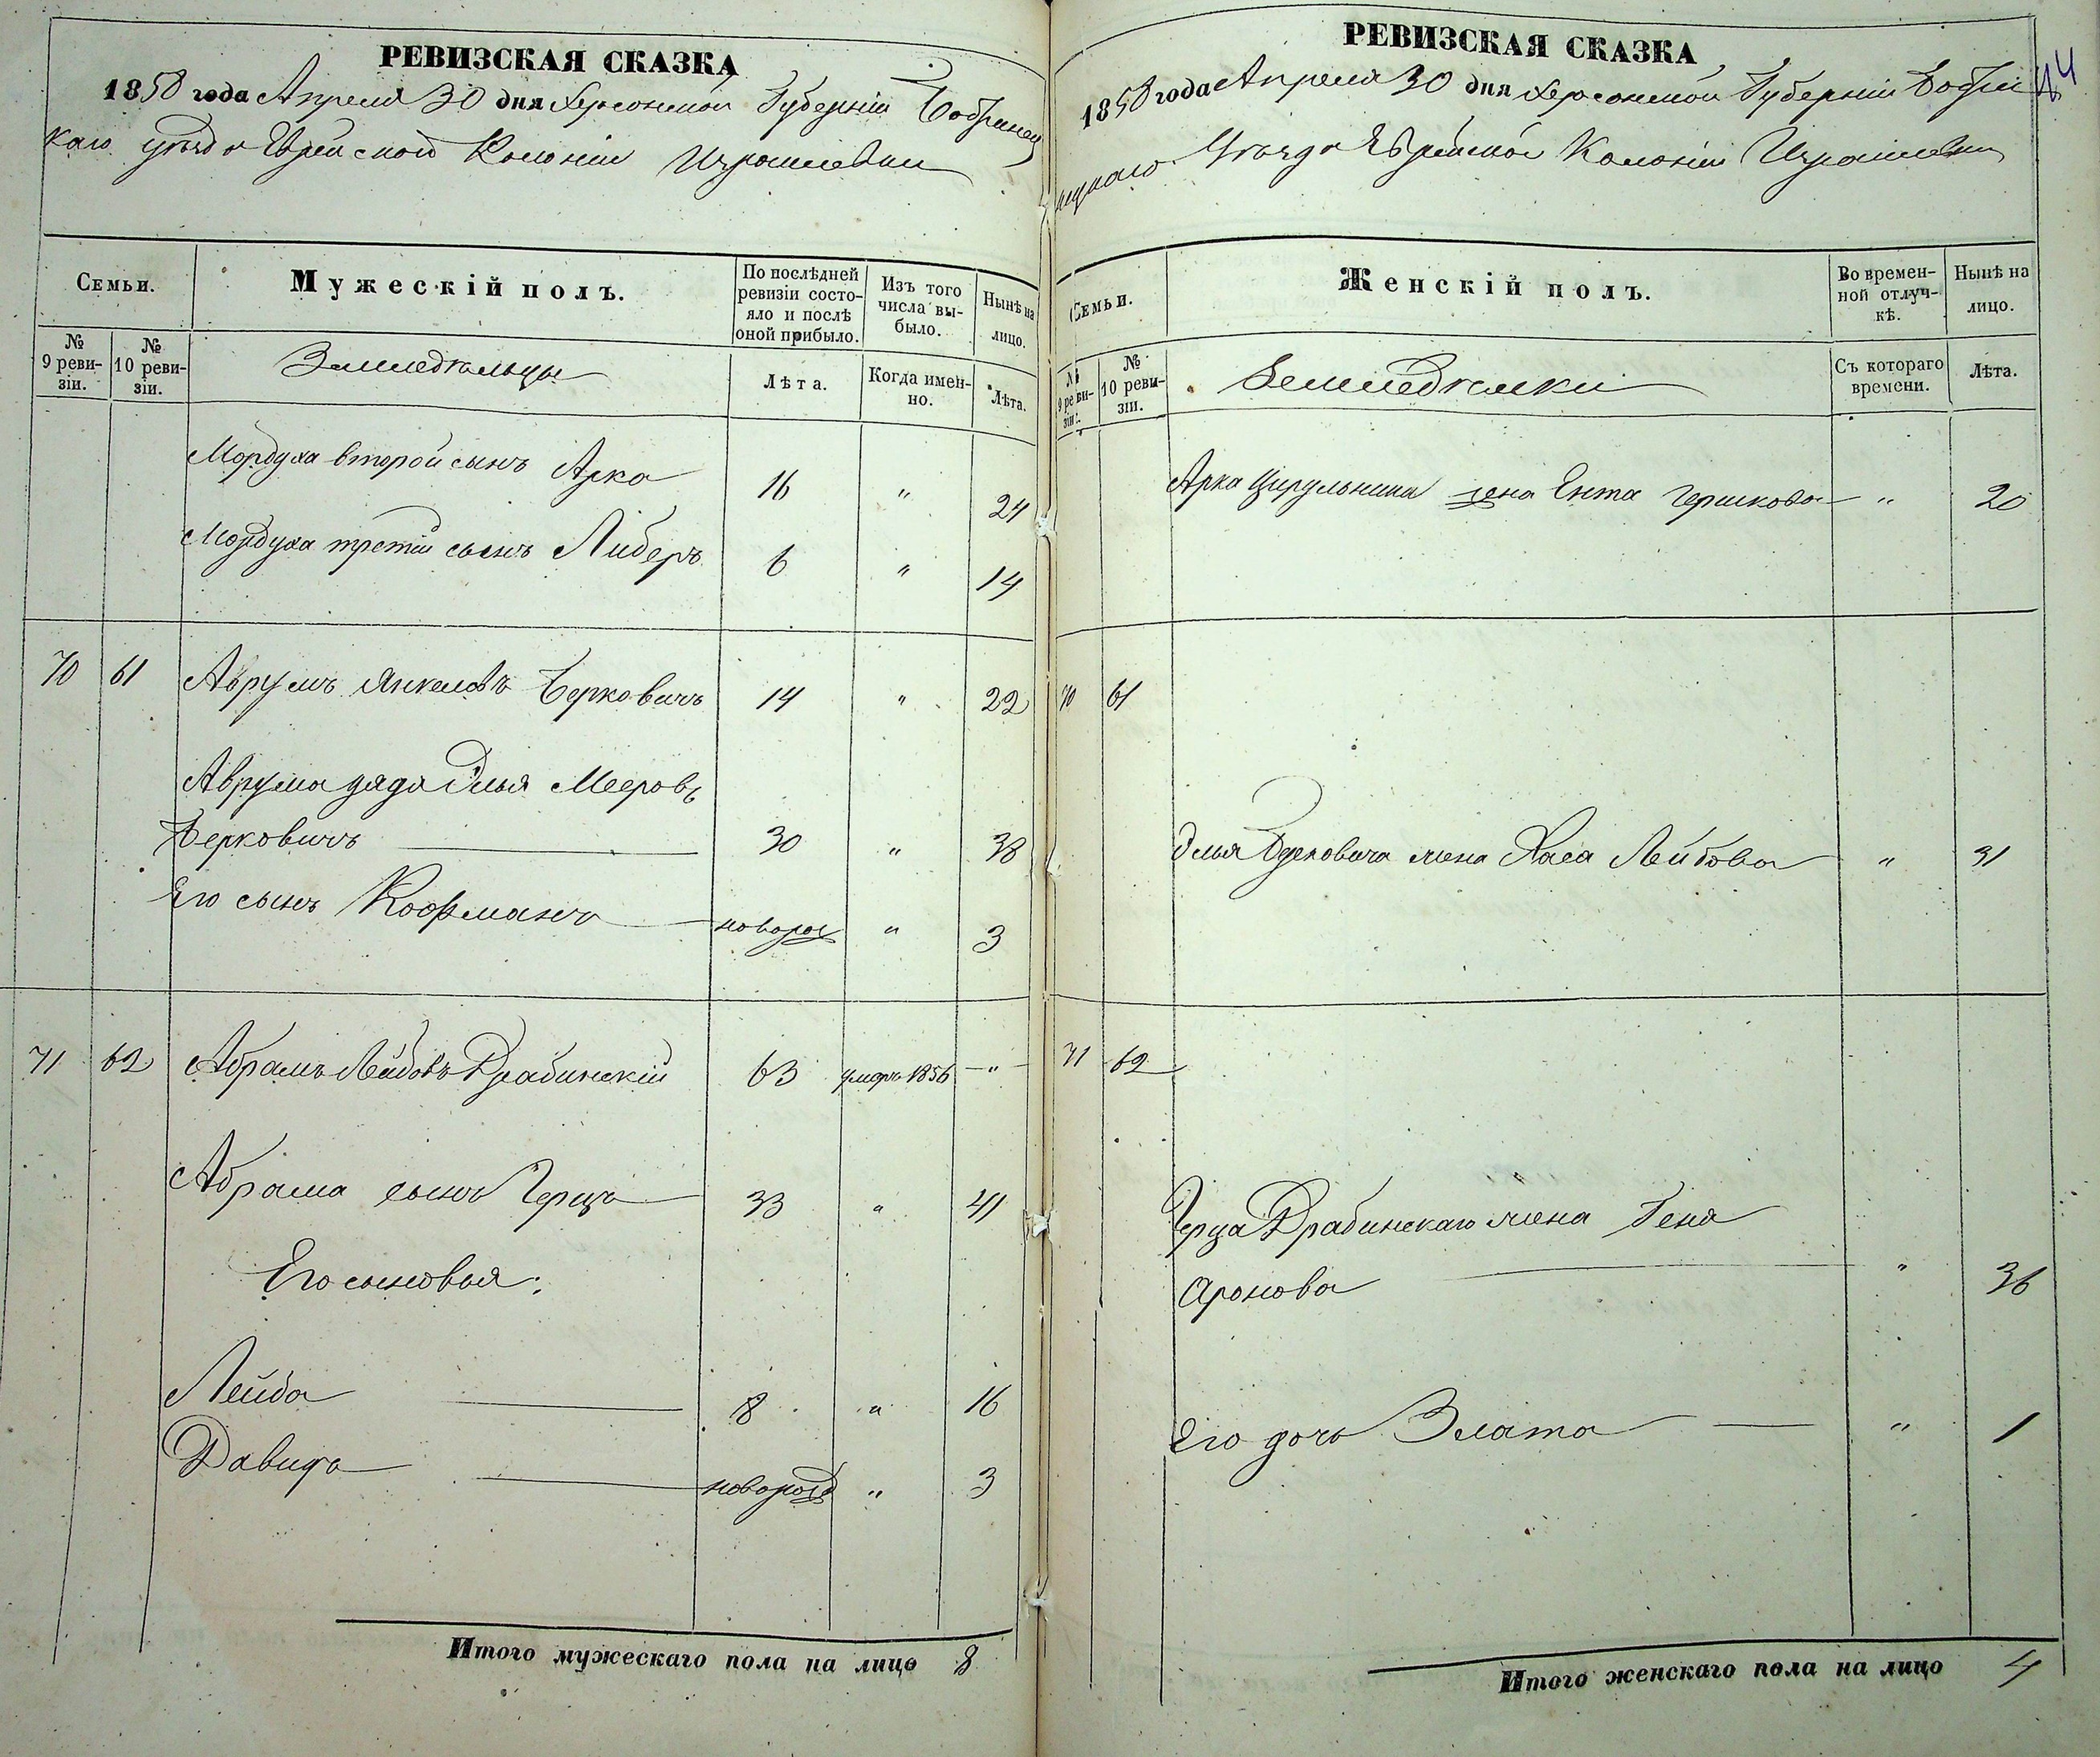 РЕВИЗСКАЯ СКАЗКА
1858 года Апреля 30 дня Херсонской Губерніи Бобринец
каго уѣзда Еврейской Колоніи Израилевки
Семьи.
Мужескій полъ.
По послѣдней ревизіи состо-
яло и послѣ оной прибыло.
Изъ того числа вы-
было.
Нынѣ на лицо.
№ 9 реви-
зіи.
№ 10 реви-
зіи.
Земледѣльцы
Лѣта.
Когда имен-
но.
Лѣта.
Мордуха второй сынъ Арко 16 " 24
Мордуха третій сынъ Либеръ 6 " 14
70 61 Аврумъ Янкелевъ Берковичъ 14 " 22
Аврума дядя Элья Мееровъ
Берковичъ 30 " 38
Его сынъ Кофманъ новорож " 3
71 62 Абрамъ Лейбовъ Драбинскій 63 умеръ 1856 "
Абрама сынъ Герцъ 33 " 41
Его сыновья:
Лейба 8 " 16
Давидъ новорожд " 3
Итого мужескаго пола на лицо 8
44
РЕВИЗСКАЯ СКАЗКА
1858 года Апреля 30 дня Херсонской Губерніи Бобри
нецкаго Уѣзда Еврейской Колоніи Израилевки
Семьи.
Женскій полъ.
Во времен-
ной отлуч-
кѣ.
Нынѣ на лицо.
№ 9 реви-
зіи.
№ 10 реви-
зіи.
Земледѣлки
Съ котораго времени.
Лѣта.
Арка Цирульника жена Ента Гершкова " 20
70 61
Элья Берковича жена Хася Лейбова " 31
71 62
Герца Драбинскаго жена Геня
Аронова " 36
Его дочь Злата " 1
Итого женскаго пола на лицо 4